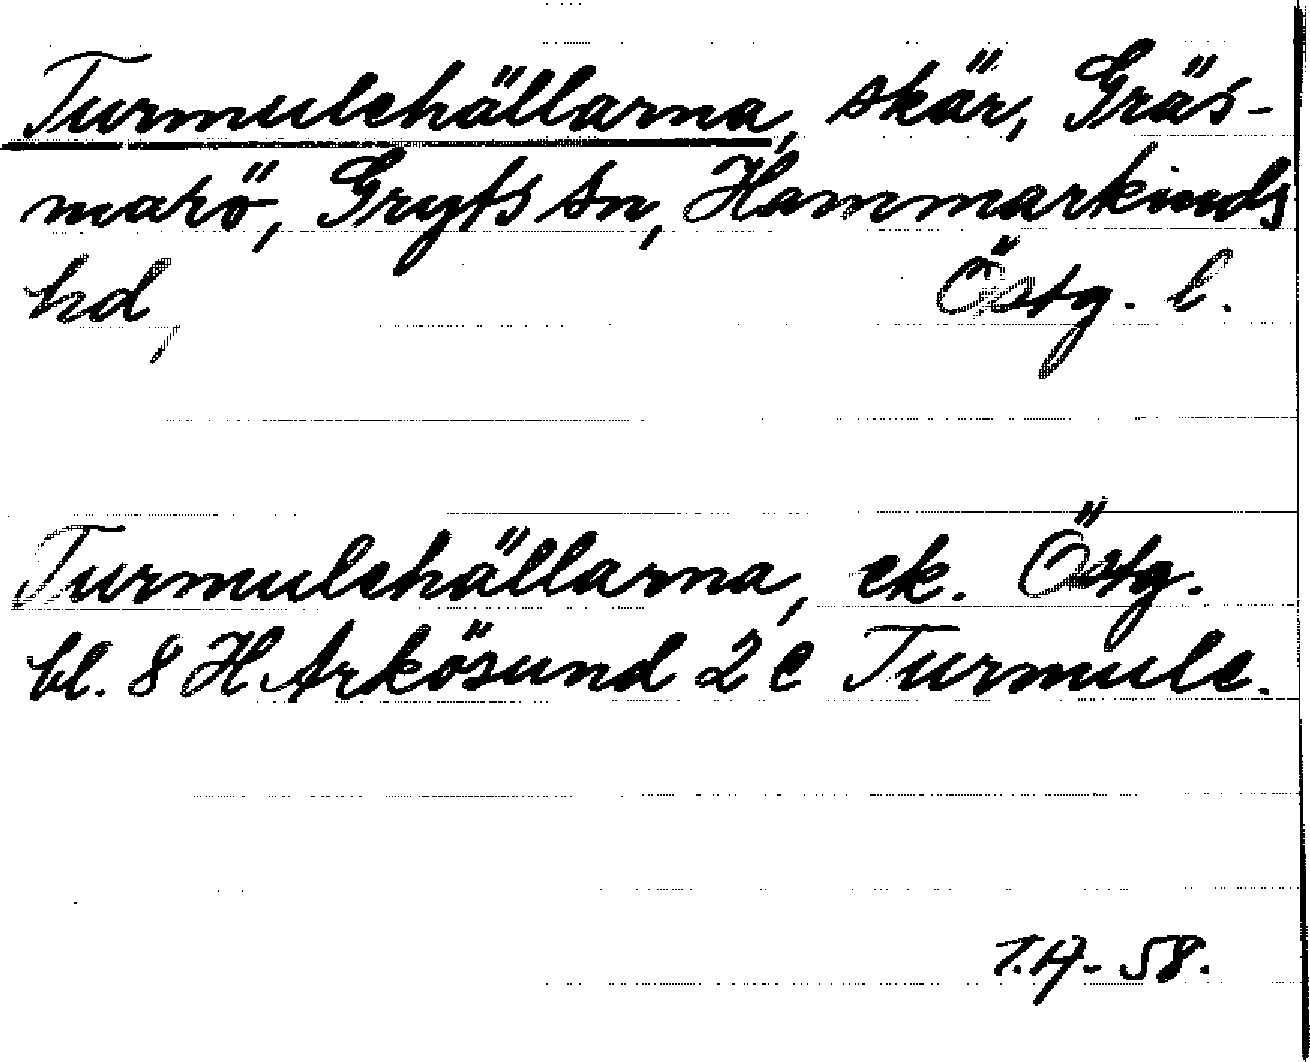 Turmulehällarna, skär, Gräs-
marö, Gryts sn, Hammarkinds
hd, Östg. l.
Turmulehällarna, ek. Östg.
bl. 8 H Arkösund 2 c Turmule.
T.A-58.